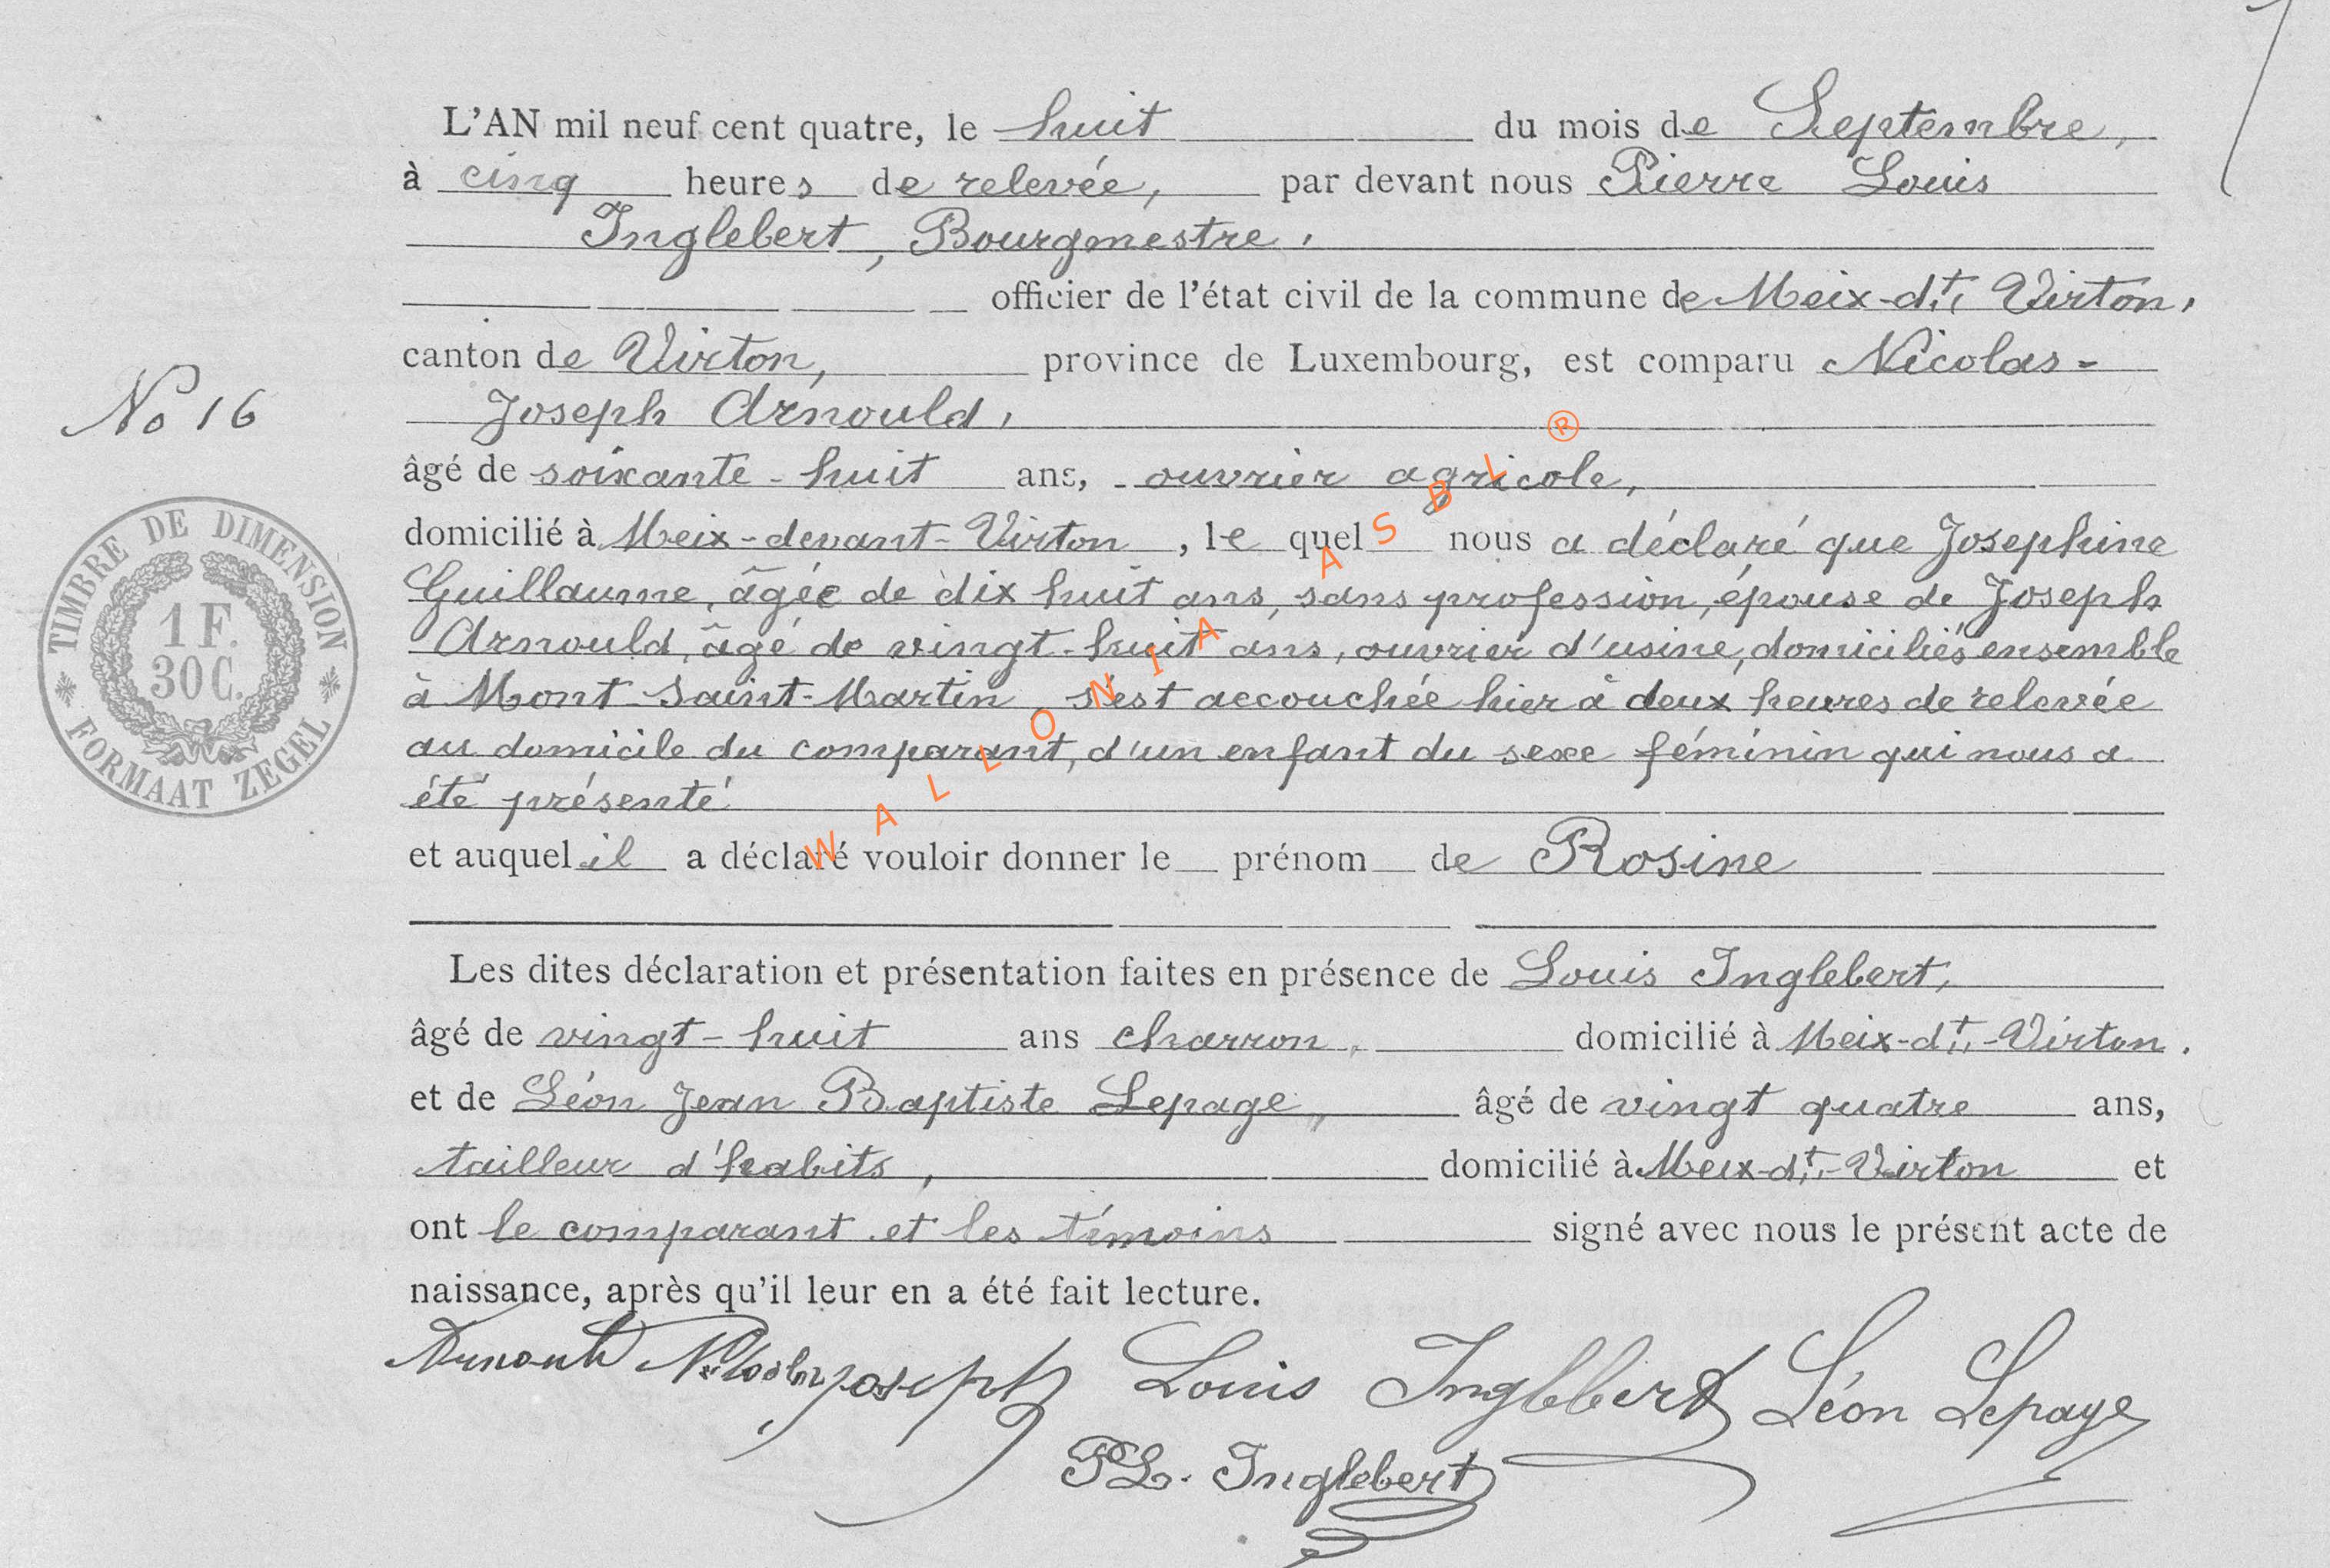 L'AN mil neuf cent quatre, le huit du mois de Septembre,
à cinq heures de relevée, par devant nous Pierre Louis
Inglebert, Bourgmestre,
officier de l'état civil de la commune de Meix-dt Virton,
canton de Virton, province de Luxembourg, est comparu Nicolas-
Joseph Arnould,
No 16
âgé de soixante-huit ans, ouvrier agricole,
domicilié à Meix-devant-Virton, le quel nous a déclaré que Josephine
Guillaume, âgée de dix huit ans, sans profession, épouse de Joseph
Arnould, âgé de vingt-huit ans, ouvrier d'usine, domiciliés ensemble
à Mont-Saint-Martin s'est accouchée hier à deux heures de relevée
au domicile du comparant, d'un enfant du sexe féminin qui nous a
été présenté
et auquel il a déclaré vouloir donner le prénom de Rosine
TIMBRE DE DIMENSION
1 F.
30 C.
FORMAAT ZEGEL
WALLONIA ASBL ®
Les dites déclaration et présentation faites en présence de Louis Inglebert,
âgé de vingt-huit ans charron, domicilié à Meix-dt-Virton.
et de Léon Jean Baptiste Lepage, âgé de vingt quatre ans,
tailleur d'habits, domicilié à Meix-dt-Virton et
ont le comparant et les témoins signé avec nous le présent acte de
naissance, après qu'il leur en a été fait lecture.
Joseph Louis Inglebert Léon Lepage
PL. Inglebert